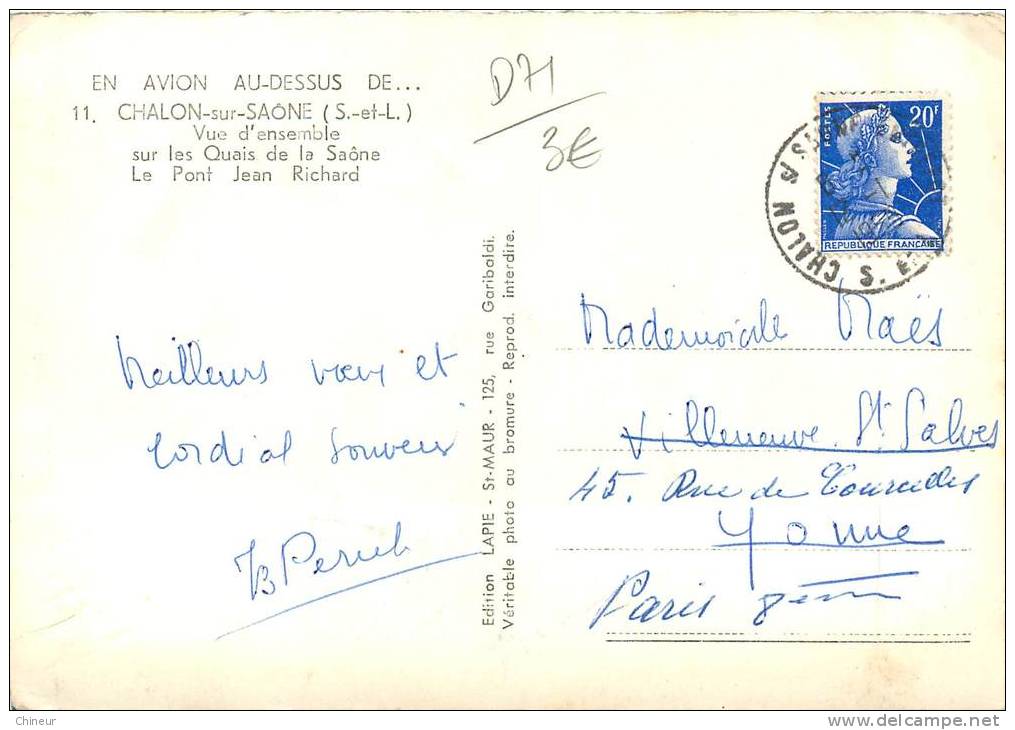 EN AVION AU-DESSUS DE...
11. CHALON-sur-SAÔNE (S.-et-L.)
Vue d'ensemble
sur les Quais de la Saône
Le Pont Jean Richard
D71
3€
POSTES
20F
REPUBLIQUE FRANÇAISE
CHALON S/ SAONE
Meilleurs vœux et
cordial souvenir
Edition LAPIE - St-MAUR - 125, rue Garibaldi.
Véritable photo au bromure - Reprod. interdire.
Mademoiselle Maës
Villeneuve St Salves
45. Rue de
Yonne
Paris 8ème
Chineur
www.delcampe.net